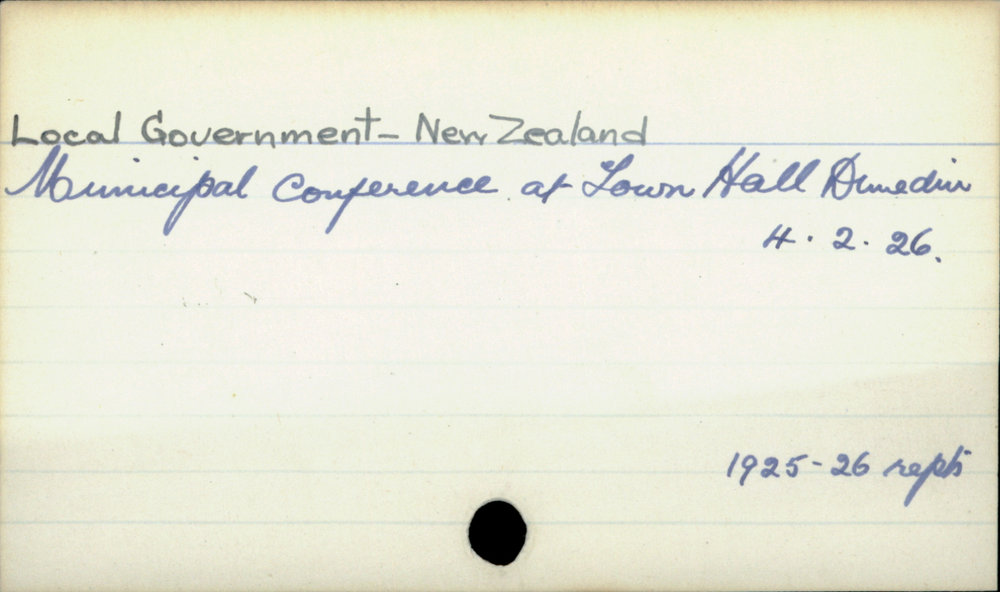 Local Government - New Zealand
Municipal Conference at Town Hall Dunedin
4. 2. 26.
1925-26 repts